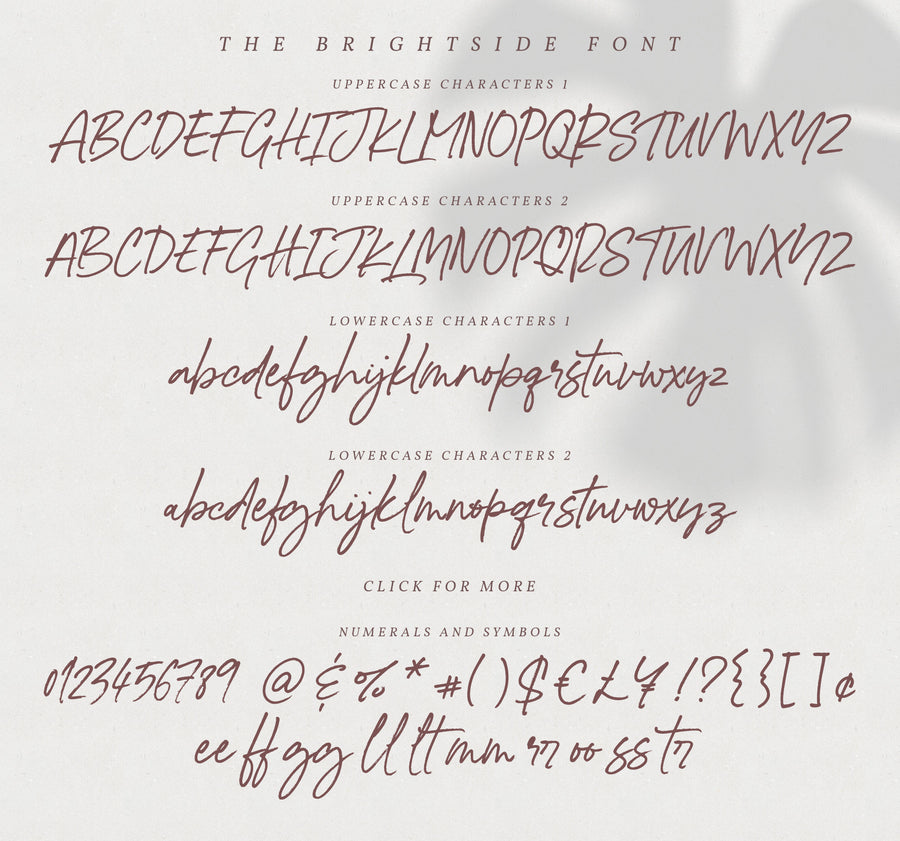 THE BRIGHTSIDE FONT
UPPERCASE CHARACTERS 1
ABCDEFGHIJKLMNOPQRSTUVWXYZ
UPPERCASE CHARACTERS 2
ABCDEFGHIJKLMNOPQRSTUVWXYZ
LOWERCASE CHARACTERS 1
abcdefghijklmnopqrstuvwxyz
LOWERCASE CHARACTERS 2
abcdefghijklmnopqrstuvwxyz
CLICK FOR MORE
NUMERALS AND SYMBOLS
0123456789 @ & % * # ( ) $ € £ ¥ ! ? { } [ ] ¢
ee ff gg ll tt mm rr oo ss tr